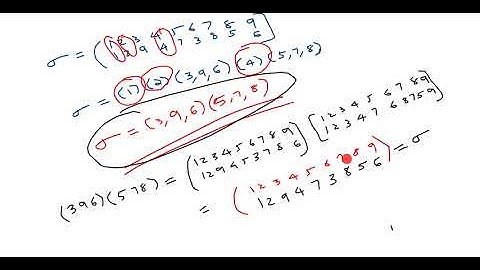 1 2 3 4 5 6 7 8 9
σ = ( 1 2 9 4 7 3 8 5 6 )
σ = (1) (2) (3,9,6) (4) (5,7,8)
σ = (3,9,6) (5,7,8)
(396)(578) = ( 1 2 3 4 5 6 7 8 9 ) [ 1 2 3 4 5 6 7 8 9
1 2 9 4 5 3 7 8 6 1 2 3 4 7 6 8 5 9
= ( 1 2 3 4 5 6 7 8 9 ) = σ
1 2 9 4 7 3 8 5 6